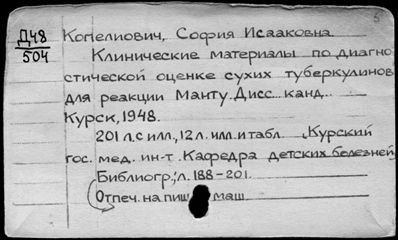 Д48
504
Копелиович, София Исааковна
Клинические материалы по диагно-
стической оценке сухих туберкулинов
для реакции Манту. Дисс. канд.
Курск, 1948.
201 л. с илл., 12 л. илл. и табл. (Курский
гос. мед. ин-т. Кафедра детских болезней
Библиогр.: л. 188-201.
Отпеч. на пиш. маш.